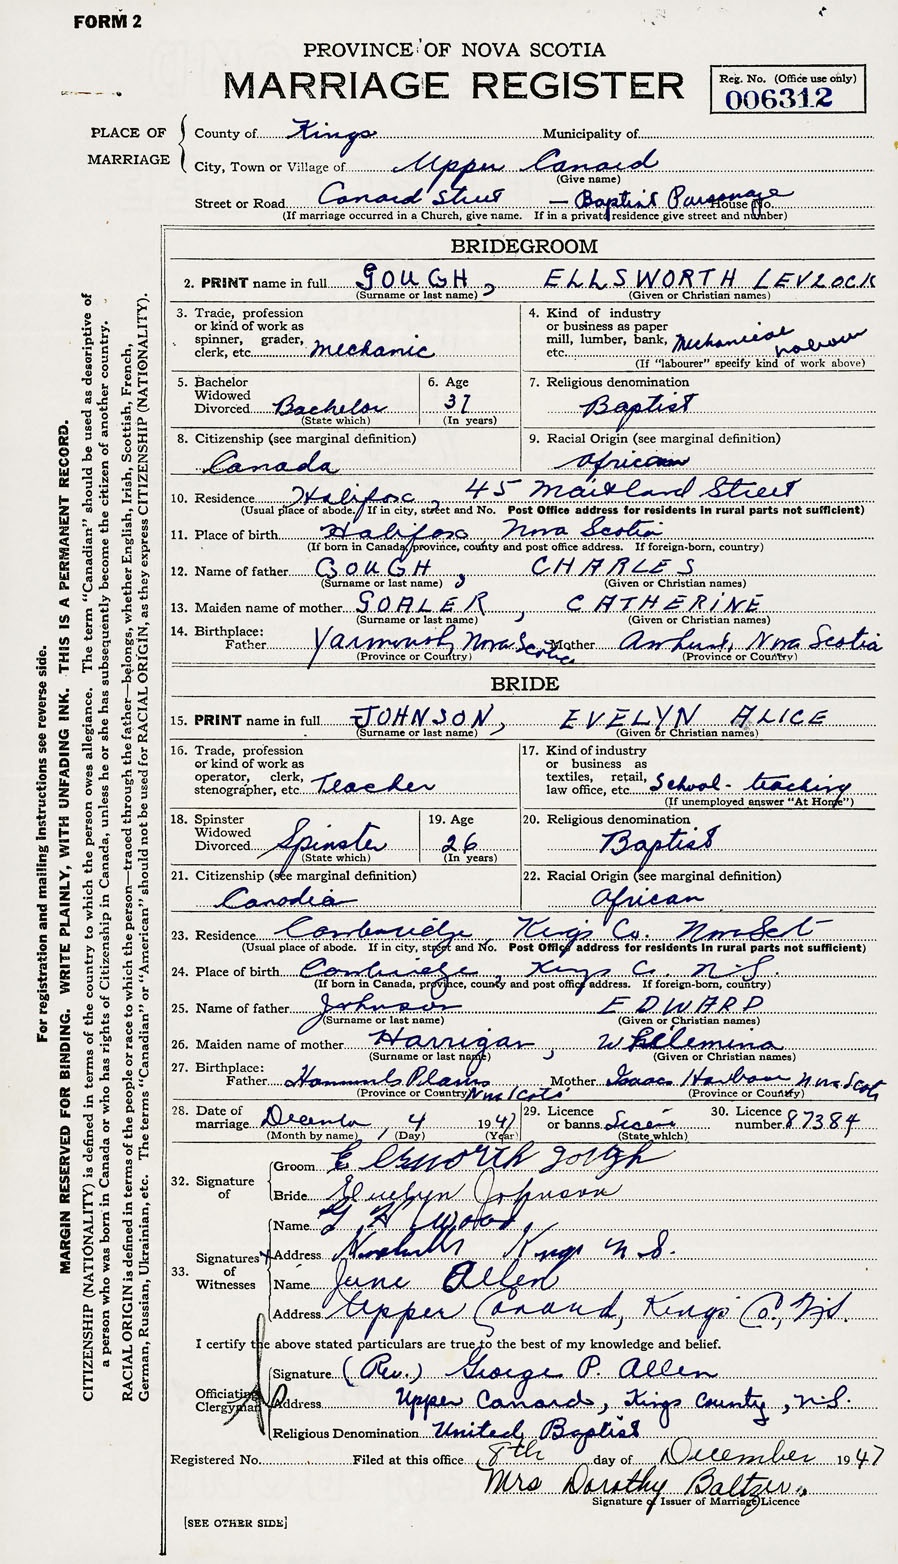 FORM 2
PROVINCE OF NOVA SCOTIA
MARRIAGE REGISTER
Reg. No. (Office use only)
006312
PLACE OF MARRIAGE
County of Kings Municipality of
City, Town or Village of Upper Canard
(Give name)
Street or Road Canard Street — Baptist Parsonage House No.
(If marriage occurred in a Church, give name. If in a private residence give street and number)
BRIDEGROOM
2. PRINT name in full GOUGH, ELLSWORTH LEVLOCK
(Surname or last name) (Given or Christian names)
3. Trade, profession or kind of work as spinner, grader, clerk, etc. Mechanic
4. Kind of industry or business as paper mill, lumber, bank, etc. Mechanical
(If "labourer" specify kind of work above)
5. Bachelor Widowed Divorced Bachelor
(State which)
6. Age 37
(In years)
7. Religious denomination
Baptist
8. Citizenship (see marginal definition)
Canada
9. Racial Origin (see marginal definition)
African
10. Residence Halifax, 45 Maitland Street
(Usual place of abode. If in city, street and No. Post Office address for residents in rural parts not sufficient)
11. Place of birth Halifax, Nova Scotia
(If born in Canada, province, county and post office address. If foreign-born, country)
12. Name of father GOUGH, CHARLES
(Surname or last name) (Given or Christian names)
13. Maiden name of mother GOALER, CATHERINE
(Surname or last name) (Given or Christian names)
14. Birthplace:
Father Yarmouth, Nova Scotia Mother Amherst, Nova Scotia
(Province or Country) (Province or Country)
BRIDE
15. PRINT name in full JOHNSON, EVELYN ALICE
(Surname or last name) (Given or Christian names)
16. Trade, profession or kind of work as operator, clerk, stenographer, etc. Teacher
17. Kind of industry or business as textiles, retail, law office, etc. School-teaching
(If unemployed answer "At Home")
18. Spinster Widowed Divorced Spinster
(State which)
19. Age 26
(In years)
20. Religious denomination
Baptist
21. Citizenship (see marginal definition)
Canadia
22. Racial Origin (see marginal definition)
African
23. Residence Cambridge, Kings Co. Nova Scot
(Usual place of abode. If in city, street and No. Post Office address for residents in rural parts not sufficient)
24. Place of birth Cambridge, Kings Co. N.S.
(If born in Canada, province, county and post office address. If foreign-born, country)
25. Name of father Johnson EDWARD
(Surname or last name) (Given or Christian names)
26. Maiden name of mother Harrigan,
(Surname or last name) (Given or Christian names)
27. Birthplace:
Father Hammonds Plains Nova Scotia Mother Isaacs Harbour Nova Scotia
(Province or Country) (Province or Country)
28. Date of marriage December, 4 1947
(Month by name) (Day) (Year)
29. Licence or banns
(State which)
30. Licence number 87384
32. Signature of
Groom Ellsworth Gough
Bride Evelyn Johnson
33. Signatures of Witnesses
Name G H Wood
Address Kings N.S.
Name June Allen
Address Upper Canard, Kings Co., N.S.
I certify the above stated particulars are true to the best of my knowledge and belief.
Officiating Clergyman
Signature (Rev.) George P. Allen
Address Upper Canard, Kings County, N.S.
Religious Denomination United Baptist
Registered No. Filed at this office 8th day of December 1947
Mrs Dorothy Baltzer
Signature of Issuer of Marriage Licence
[SEE OTHER SIDE]
For registration and mailing instructions see reverse side.
MARGIN RESERVED FOR BINDING. WRITE PLAINLY, WITH UNFADING INK. THIS IS A PERMANENT RECORD.
CITIZENSHIP (NATIONALITY) is defined in terms of the country to which the person owes allegiance. The term "Canadian" should be used as descriptive of
a person who was born in Canada or who has rights of Citizenship in Canada, unless he or she has subsequently become the citizen of another country.
RACIAL ORIGIN is defined in terms of the people or race to which the person—traced through the father—belongs, whether English, Irish, Scottish, French,
German, Russian, Ukrainian, etc. The terms "Canadian" or "American" should not be used for RACIAL ORIGIN, as they express CITIZENSHIP (NATIONALITY).